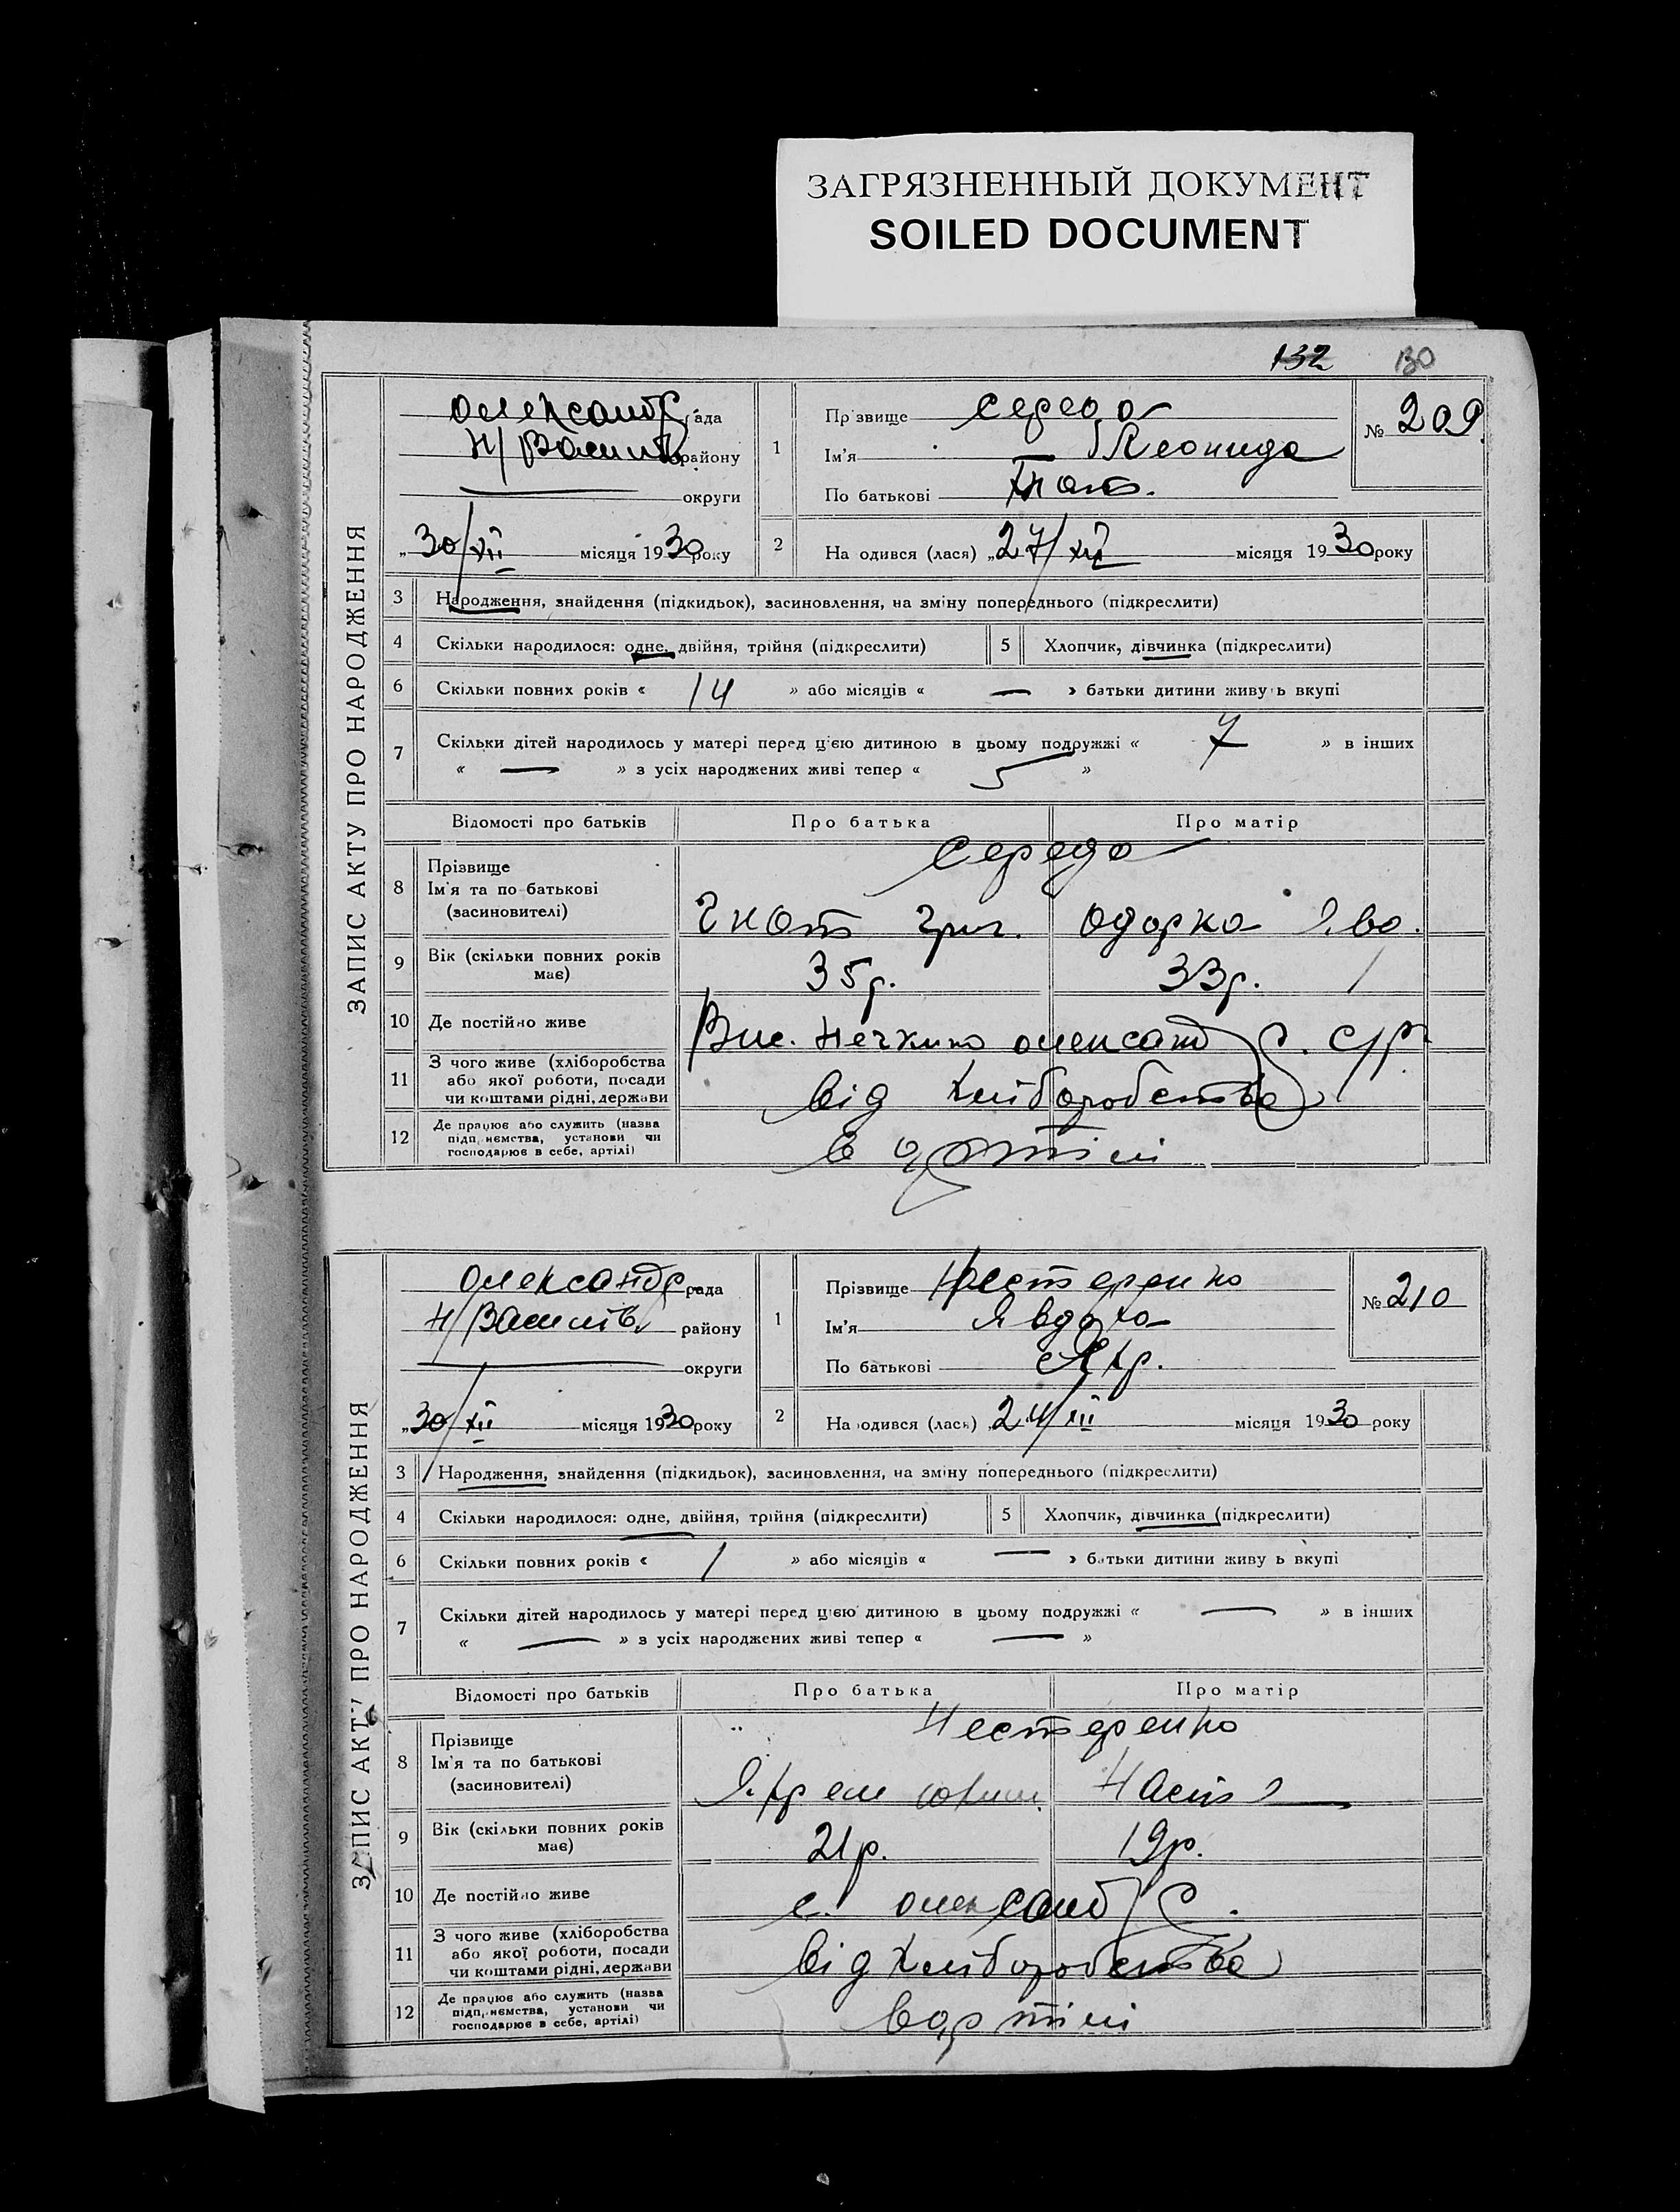 ЗАГРЯЗНЕННЫЙ ДОКУМЕНТ
SOILED DOCUMENT
132 130
ЗАПИС АКТУ ПРО НАРОДЖЕННЯ
Олександр рада
Н/Васил району
округи
„30/XII місяця 1930 року
1 Прізвище Середа
Ім'я Леонида
По батькові Гнат.
№ 209
2 На одився (лася) „27/XII місяця 1930 року
3 Народження, знайдення (підкидьок), засиновлення, на зміну попереднього (підкреслити)
4 Скільки народилося: одне, двійня, трійня (підкреслити) 5 Хлопчик, дівчинка (підкреслити)
6 Скільки повних років « 14 » або місяців « — » батьки дитини живуть вкупі
7 Скільки дітей народилось у матері перед цією дитиною в цьому подружжі « 7 » в інших
« — » з усіх народжених живі тепер « 5 »
Відомості про батьків Про батька Про матір
8 Прізвище Середа
Ім'я та по-батькові
(засиновителі) Гнат Григ. Одарка
9 Вік (скільки повних років має) 35р. 33р.
10 Де постійно живе Вис. Нечкино Олександ с/р
11 З чого живе (хліборобства
або якої роботи, посади
чи коштами рідні, держави від хліборобства
12 Де працює або служить (назва
підприємства, установи чи
господарює в себе, артілі) в артілі
ЗАПИС АКТУ ПРО НАРОДЖЕННЯ
Олександр рада
Н/Василів району
округи
„30/XII місяця 1930 року
1 Прізвище Нестеренко
Ім'я Явдоха
По батькові Яхр.
№ 210
2 На одився (лася) „24/XII місяця 1930 року
3 Народження, знайдення (підкидьок), засиновлення, на зміну попереднього (підкреслити)
4 Скільки народилося: одне, двійня, трійня (підкреслити) 5 Хлопчик, дівчинка (підкреслити)
6 Скільки повних років « 1 » або місяців « — » батьки дитини живу ь вкупі
7 Скільки дітей народилось у матері перед цією дитиною в цьому подружжі « — » в інших
« — » з усіх народжених живі тепер « — »
Відомості про батьків Про батька Про матір
8 Прізвище Нестеренко
Ім'я та по батькові
(засиновителі) Яхрем Юхим. Настя
9 Вік (скільки повних років має) 21р. 19р.
10 Де постійно живе с. Олександр
11 З чого живе (хліборобства
або якої роботи, посади
чи коштами рідні, держави від хліборобства
12 Де працює або служить (назва
підприємства, установи чи
господарює в себе, артілі) в артілі